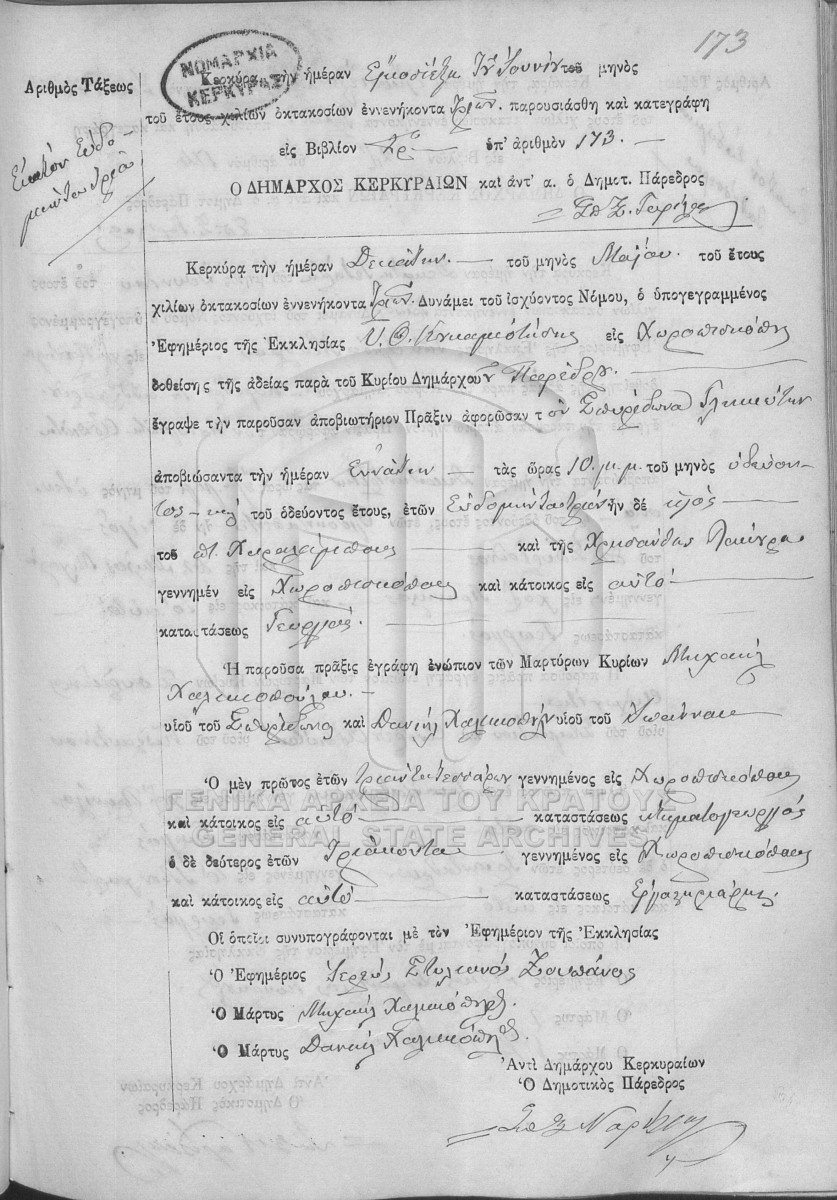 173
ΝΟΜΑΡΧΙΑ
ΚΕΡΚΥΡΑΣ
Ἀριθμὸς Τάξεως
Κερκύρα τὴν ἡμέραν Εἰκοσιέξη Ἰουνίου τοῦ μηνὸς
τοῦ ἔτους χιλίων ὀκτακοσίων ἐννενήκοντα τριῶν παρουσιάσθη καὶ κατεγράφη
εἰς Βιβλίον ὑπ' ἀριθμὸν 173.
Ἑκατὸν Ἑβδο-
μήκοντα τρία
Ο ΔΗΜΑΡΧΟΣ ΚΕΡΚΥΡΑΙΩΝ καὶ ἀντ' α. ὁ Δημοτ. Πάρεδρος
Κερκύρα τὴν ἡμέραν Δεκάτην τοῦ μηνὸς Μαΐου. τοῦ ἔτους
χιλίων ὀκτακοσίων ἐννενήκοντα τριῶν. Δυνάμει τοῦ ἰσχύοντος Νόμου, ὁ ὑπογεγραμμένος
Ἐφημέριος τῆς Ἐκκλησίας Υ. Θ. εἰς Χωροεπισκόπους
δοθείσης τῆς ἀδείας παρὰ τοῦ Κυρίου Δημάρχου Παρέδρου.
ἔγραψε τὴν παροῦσαν ἀποβιωτήριον Πρᾶξιν ἀφορῶσαν τὸν Σπυρίδωνα
ἀποβιώσαντα τὴν ἡμέραν Ἐννάτην τὰς ὥρας 10. μ.μ. τοῦ μηνὸς ὁδεύον-
τος καὶ τοῦ ὁδεύοντος ἔτους, ἐτῶν Ἑβδομήντα τριῶν ἦν δὲ υἱὸς
τοῦ π. Χαραλάμπους καὶ τῆς Χρυσάνθης
γεννημέν εἰς Χωροεπισκόπους καὶ κάτοικος εἰς αὐτό
καταστάσεως Γεωργός.
Ἡ παροῦσα πρᾶξις ἐγράφη ἐνώπιον τῶν Μαρτύρων Κυρίων Μιχαὴλ
Χαλικιοπούλου.
υἱοῦ τοῦ Σπυρίδωνα καὶ Δανιὴλ Χαλικιόπουλου υἱοῦ τοῦ
Ὁ μὲν πρῶτος ἐτῶν τριάντα τεσσάρων γεννημένος εἰς Χωροεπισκόπους
καὶ κάτοικος εἰς αὐτό καταστάσεως κτηματογεωργός
ὁ δὲ δεύτερος ἐτῶν Τριάκοντα γεννημένος εἰς Χωροεπισκόπους
καὶ κάτοικος εἰς αὐτό καταστάσεως
Οἱ ὁποῖοι συνυπογράφονται μὲ τὸν Ἐφημέριον τῆς Ἐκκλησίας
Ὁ Ἐφημέριος Ἱερεὺς Στυλιανὸς Ζουπάνος
Ὁ Μάρτυς Μιχαὴλ Χαλικιόπουλος.
Ὁ Μάρτυς Δανιὴλ Χαλικιόπουλος
Ἀντὶ Δημάρχου Κερκυραίων
Ὁ Δημοτικὸς Πάρεδρος
ΓΕΝΙΚΑ ΑΡΧΕΙΑ ΤΟΥ ΚΡΑΤΟΥΣ
GENERAL STATE ARCHIVES